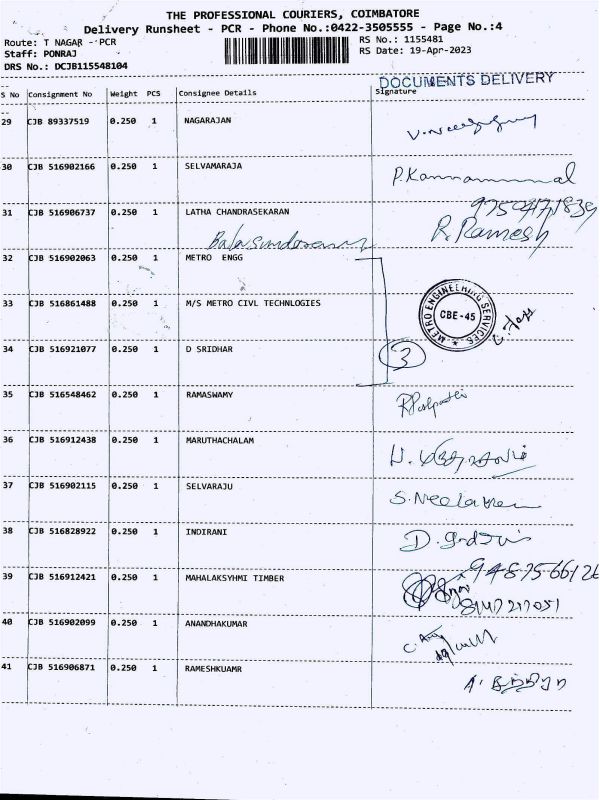 THE PROFESSIONAL COURIERS, COIMBATORE
Delivery Runsheet - PCR - Phone No.:0422-3505555 - Page No.:4
Route: T NAGAR - PCR
RS No.: 1155481
Staff: PONRAJ
RS Date: 19-Apr-2023
DRS No.: DCJB115548104
DOCUMENTS DELIVERY
S No Consignment No Weight PCS Consignee Details Signature
29 CJB 89337519 0.250 1 NAGARAJAN
30 CJB 516902166 0.250 1 SELVAMARAJA P.Kannammal
31 CJB 516906737 0.250 1 LATHA CHANDRASEKARAN
R.Ramesh
32 CJB 516902063 0.250 1 METRO ENGG
33 CJB 516861488 0.250 1 M/S METRO CIVL TECHNLOGIES
METRO ENGINEERING SERVICES
CBE-45
34 CJB 516921077 0.250 1 D SRIDHAR 3
35 CJB 516548462 0.250 1 RAMASWAMY
36 CJB 516912438 0.250 1 MARUTHACHALAM
37 CJB 516902115 0.250 1 SELVARAJU
38 CJB 516828922 0.250 1 INDIRANI
39 CJB 516912421 0.250 1 MAHALAKSYHMI TIMBER
40 CJB 516902099 0.250 1 ANANDHAKUMAR
41 CJB 516906871 0.250 1 RAMESHKUAMR